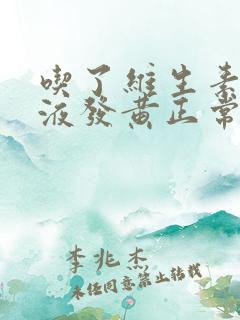 喫了維生素
液發黄正常
李兆杰
未任同意禁止转载